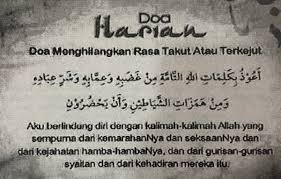 Doa
Harian
Doa Menghilangkan Rasa Takut Atau Terkejut
أَعُوْذُ بِكَلِمَاتِ اللهِ التَّامَّةِ مِنْ غَضَبِهِ وَعِقَابِهِ وَشَرِّ عِبَادِهِ
وَمِنْ هَمَزَاتِ الشَّيَاطِيْنِ وَأَنْ يَحْضُرُوْنِ
Aku berlindung diri dengan kalimah-kalimah Allah yang
sempurna dari kemarahanNya dan seksaanNya dan
dari kejahatan hamba-hambaNya, dan dari gurisan-gurisan
syaitan dan dari kehadiran mereka itu.